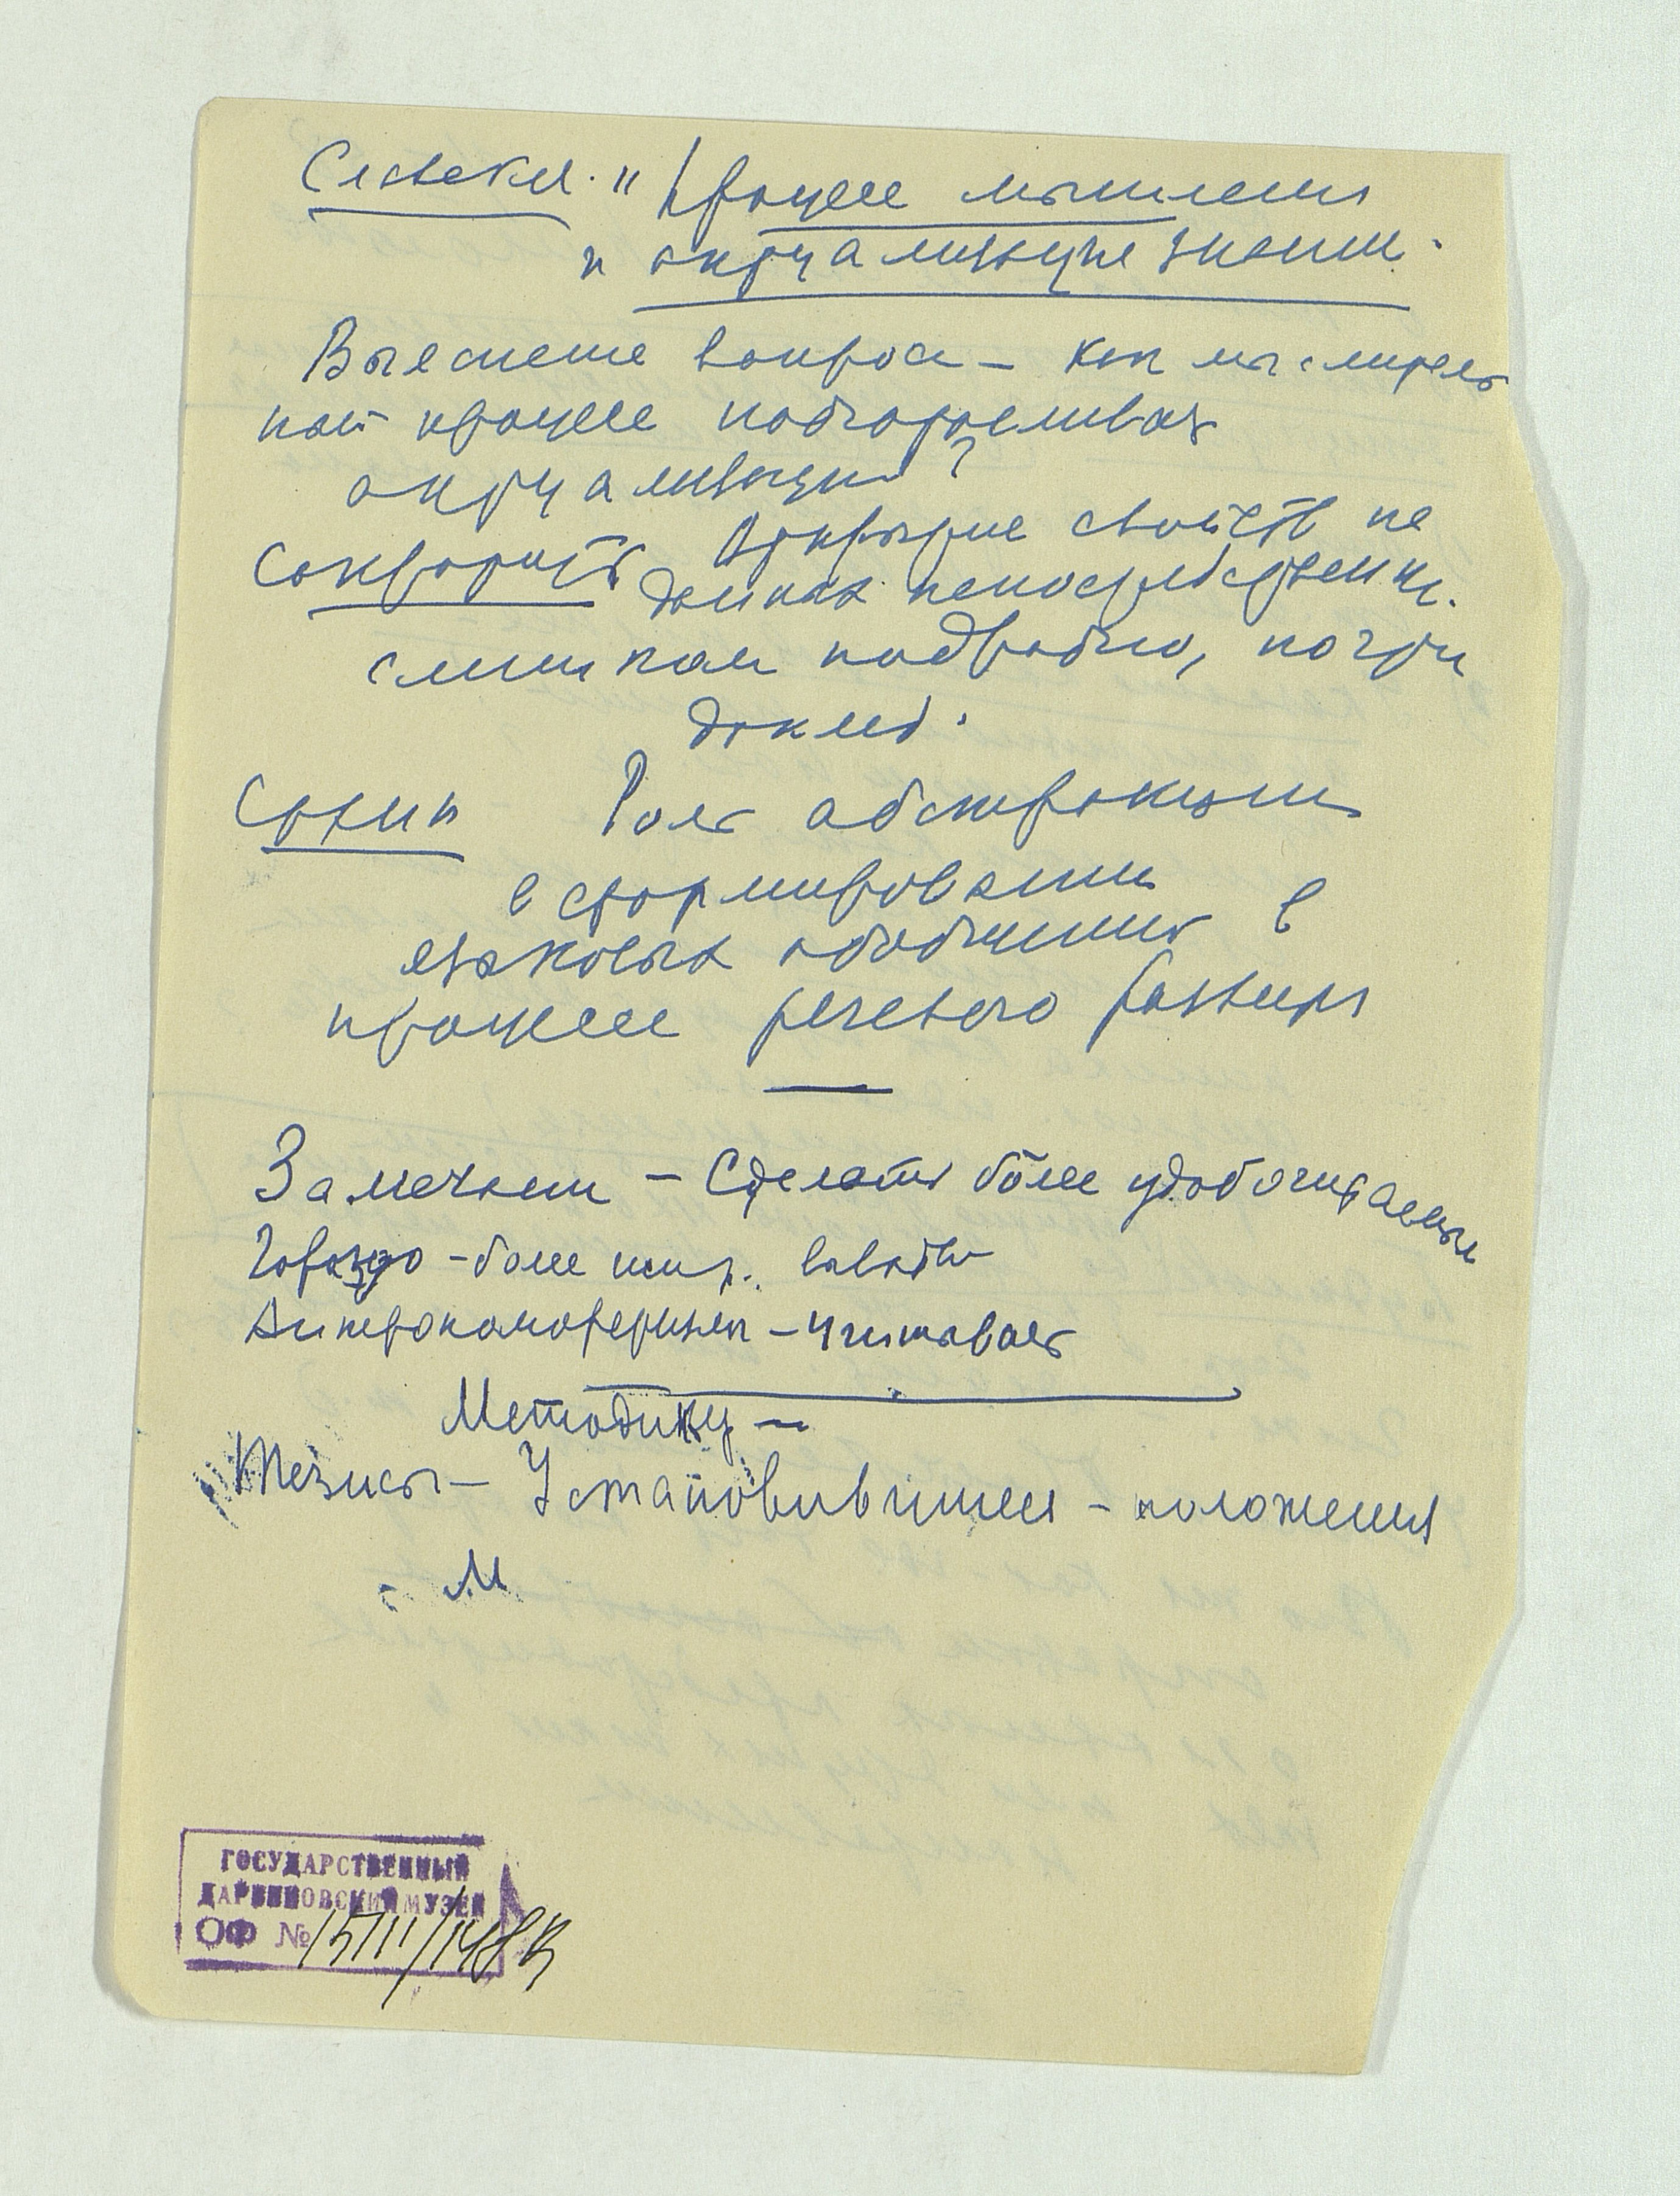 Славская. "Процесс мышления
и актуализация знаний.
Выяснение вопроса – как мыслитель
ный процесс подготавливает
актуализацию?
Открытие свойств не
данных непосредственн.
слишком подробно, почти
доклад.
Сохин Роль абстракции
в формировании
языковых обобщений в
процессе речевого развития
Замечания – Сделать более удобочитаемые
Гораздо – более вводить
Антропоморфизмы – Учитывать
Методику –
Тезисы – Установившиеся – положения
- М
ГОСУДАРСТВЕННЫЙ
ДАРВИНОВСКИЙ МУЗЕЙ
ОФ № 15111/148